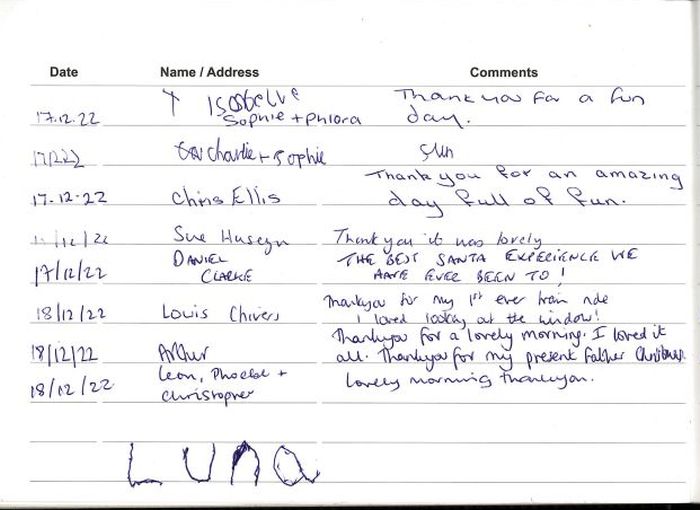 Date Name / Address Comments
Isabelle Thank you for a fun
17.12.22 Sophie + Phlora day.
17/12/22 Charlie + Sophie fun
Thank you for an amazing
17-12-22 Chris Ellis day full of fun.
/12/22 Sue Huseyn Thank you it was lovely
DANIEL THE BEST SANTA EXPERIENCE WE
17/12/22 CLARKE HAVE EVER BEEN TO!
Thankyou for my 1st ever train ride
18/12/22 Louis Chivers I loved looking at the window!
Thankyou for a lovely morning. I loved it
18/12/22 Arthur all. Thankyou for my present Father Christmas
Leon, Phoebe + Lovely morning thankyou.
18/12/22 Christopher
Luna